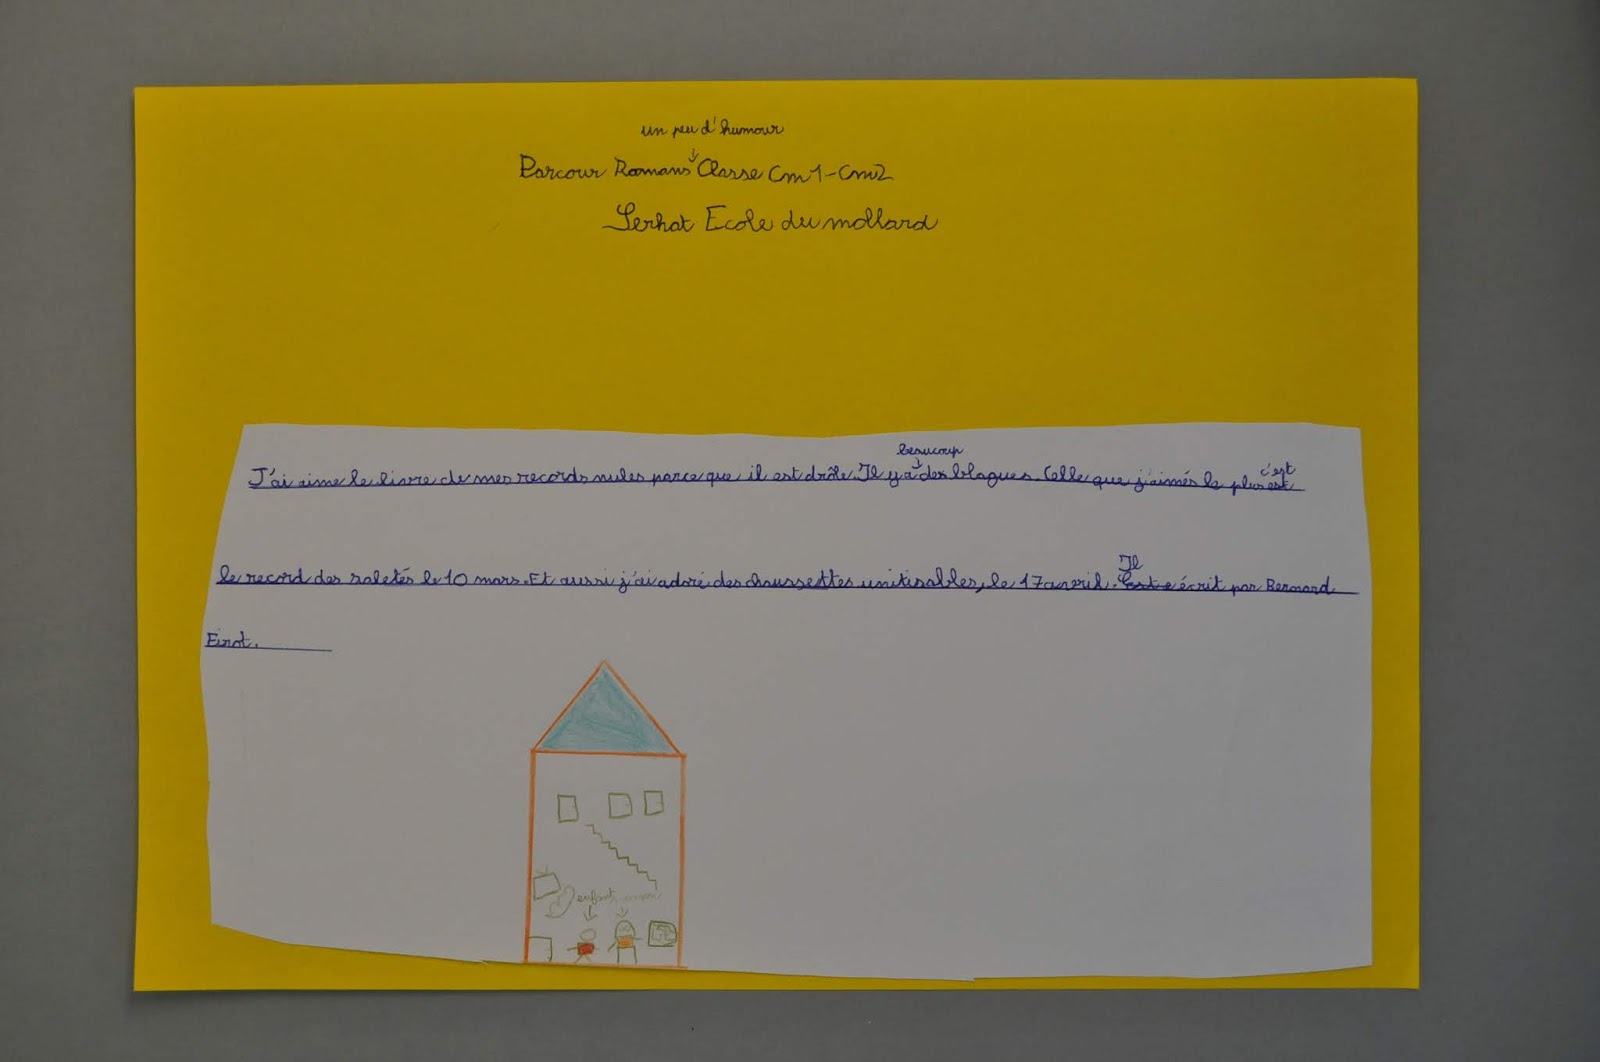 un peu d'humour
Parcour Romans Classe Cm1-Cm2
Serhat Ecole du mollard
beaucoup
J'ai aime le livre de mes records nules parce que il est drôle. Il y a des blagues. Celle que j'aimés le plus est
c'est
le record des saletés le 10 mars. Et aussi j'ai adoré des chaussettes unitisables, le 17 avril. écrit par Bernard
Il
Firot.
enfant maman